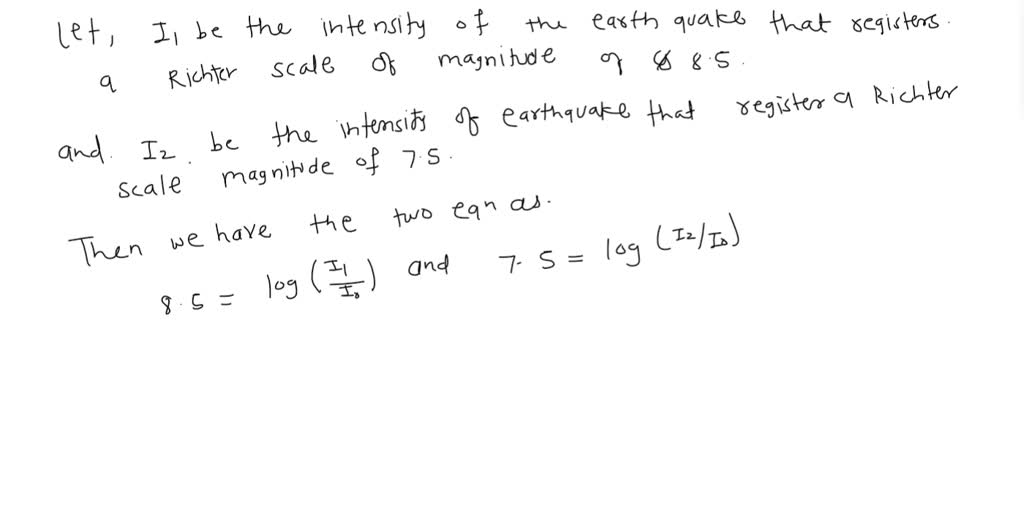 let, I₁ be the intensity of the earth quake that registers.
a Richter scale of magnitude of 8.5.
and. I₂ be the intensity of earthquake that register a Richter
scale magnitude of 7.5.
Then we have the two eqn as.
8.5 = log(I₁/I₀) and 7.5 = log(I₂/I₀)